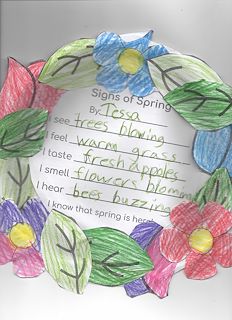 Signs of Spring
By: Tessa
I see trees blowing
I feel warm grass
I taste fresh apples
I smell flowers blooming
I hear bees buzzing
I know that spring is here!